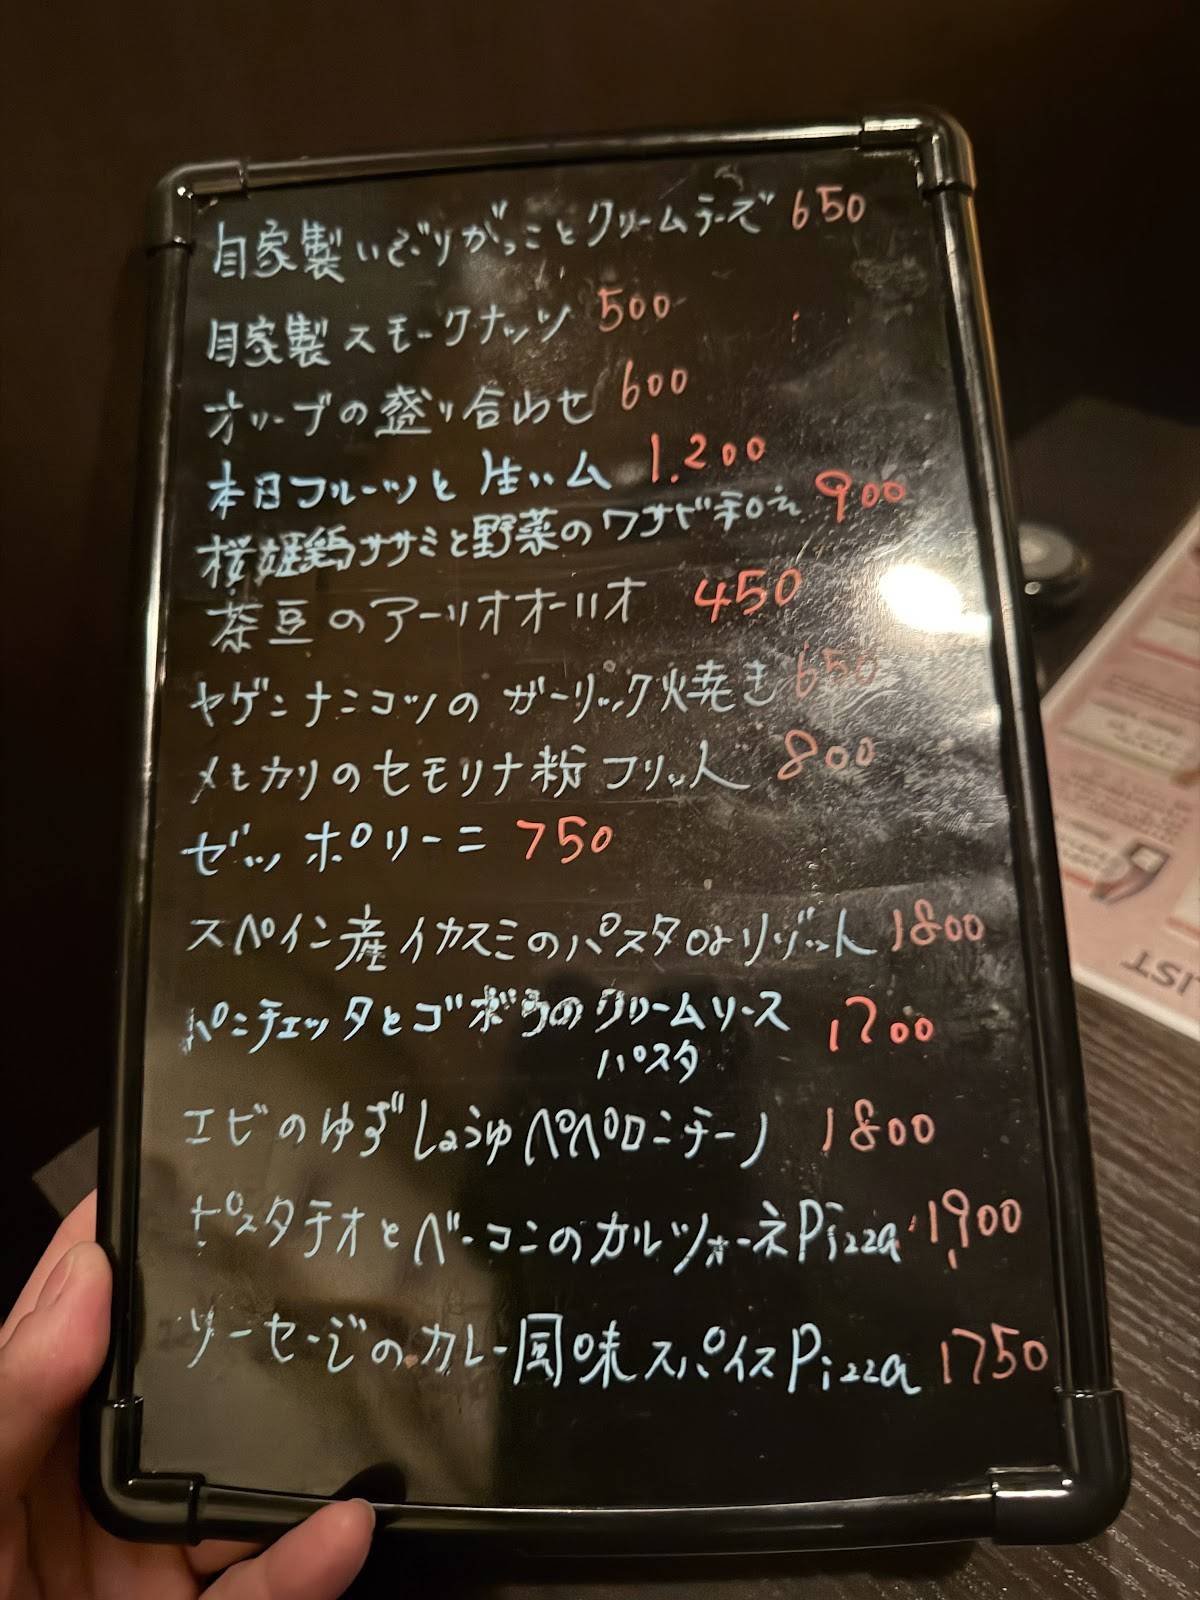 自家製いぶりがっことクリームチーズ 650
自家製スモークナッツ 500
オリーブの盛り合わせ 600
本日フルーツと生ハム 1.200
桜姫鶏ササミと野菜のワサビ和え 900
茶豆のアーリオオーリオ 450
ヤゲンナンコツのガーリック焼き 650
メヒカリのセモリナ粉フリット 800
ゼッポリーニ 750
スペイン産イカスミのパスタorリゾット 1800
パンチェッタとゴボウのクリームソース 1700
パスタ
エビのゆずしょうゆペペロンチーノ 1800
ピスタチオとベーコンのカルツォーネPizza 1900
ソーセージのカレー風味スパイスPizza 1750
IST